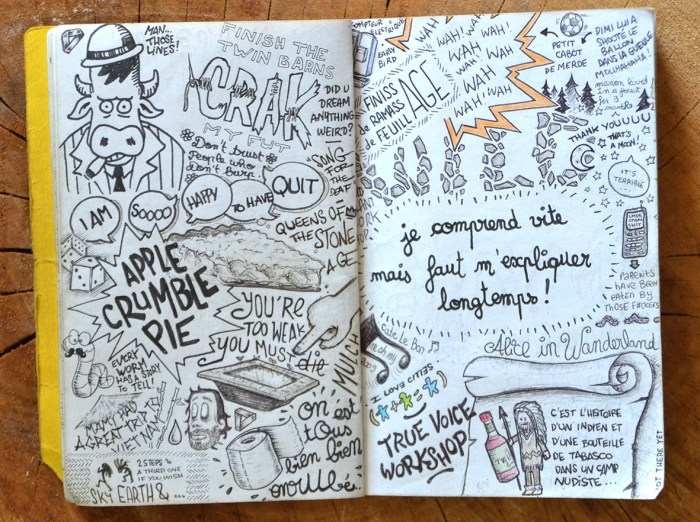 MAN...
THOSE
LINES!
FINISH THE
TWIN BARNS
CRAK
MY FUT
DID U
DREAM
ANYTHING
WEIRD?
Don't trust
People who
Don't burp.
SONG
FOR THE
DEAF
I AM
SOOOO
HAPPY
TO HAVE
QUIT
QUEENS OF
THE STONE
AGE
APPLE
CRUMBLE
PIE
YOU'RE
TOO WEAK
YOU MUST die
MULCH
EVERY
WORM
HAS A STORY
TO TELL!
MAMI HAD
A GREAT TRIP
VIETNAM
on est
tous
bien bien
2 STEPS &
A THIRD ONE
IF YOU WISH
SKY EARTH & ...
COMPTEUR
EARLY
BIRD
FINISS
de RAMASSAGE
de FEUILL
WAH! WAH!
WAH! WAH!
WAH! WAH!
WAH! WAH!
WAH! WAH!
PETIT
CABOT
DE MERDE
DIMI LUI A
SHOOTÉ LE
BALLON
DANS LA GUEULE
MOUHAHAHA!
manon lived
in a forest
for 3
months
THANK YOUUUU
THAT'S
A MOON!
IT'S
TERRIBLE
PARENTS
HAVE BEEN
EATEN BY
THOSE FUCKERS
je comprend vite
mais faut m'expliquer
longtemps!
Alice in Wanderland
I LOVE CITIES
TRUE VOICE
WORKSHOP
C'EST L'HISTOIRE
D'UN INDIEN ET
D'UNE BOUTEILLE
DE TABASCO
DANS UN CAMP
NUDISTE...
NOT THERE YET